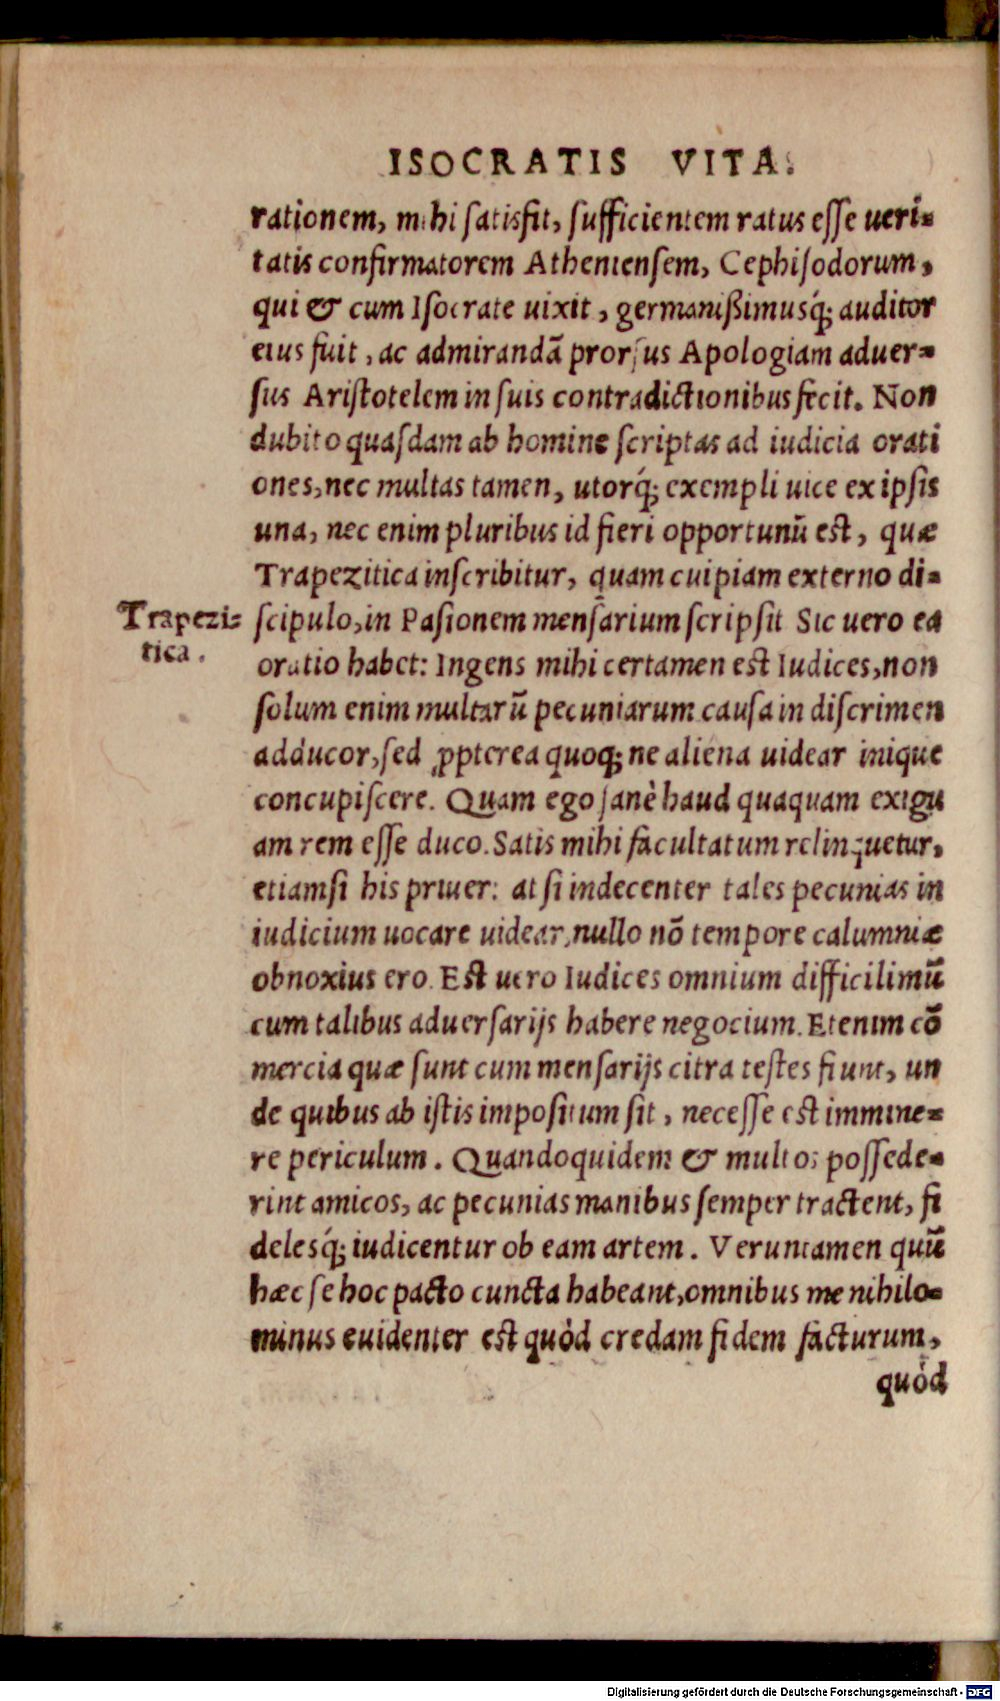 ISOCRATIS VITA.
rationem, mihi ſatisfit, ſufficientem ratus eſſe ueri-
tatis confirmatorem Athenienſem, Cephiſodorum,
qui & cum Iſocrate uixit, germanißimusq́; auditor
eius fuit, ac admirandā prorſus Apologiam aduer-
ſus Ariſtotelem in ſuis contradictionibus fecit. Non
dubito quaſdam ab homine ſcriptas ad iudicia orati
ones, nec multas tamen, utorq́; exempli uice ex ipſis
una, nec enim pluribus id fieri opportunū eſt, quæ
Trapezitica inſcribitur, quam cuipiam externo di-
Trapezi-
tica.
ſcipulo, in Paſionem menſarium ſcripſit Sic uero ea
oratio habet: Ingens mihi certamen eſt Iudices, non
ſolum enim multarū pecuniarum cauſa in diſcrimen
adducor, ſed ꝓpterea quoq; ne aliena uidear inique
concupiſcere. Quam ego ſanè haud quaquam exigu
am rem eſſe duco. Satis mihi facultatum relinquetur,
etiamſi his priuer: at ſi indecenter tales pecunias in
iudicium uocare uidear, nullo nō tempore calumniæ
obnoxius ero. Eſt uero Iudices omnium difficilimū
cum talibus aduerſarijs habere negocium. Etenim cō
mercia quæ ſunt cum menſarijs citra teſtes fiunt, un
de quibus ab iſtis impoſitum ſit, neceſſe eſt immine-
re periculum. Quandoquidem & multos poſſede-
rint amicos, ac pecunias manibus ſemper tractent, fi
delesq́; iudicentur ob eam artem. Veruntamen quū
hæc ſe hoc pacto cuncta habeant, omnibus me nihilo-
minus euidenter eſt quòd credam fidem facturum,
quòd
Digitalisierung gefördert durch die Deutsche Forschungsgemeinschaft - DFG